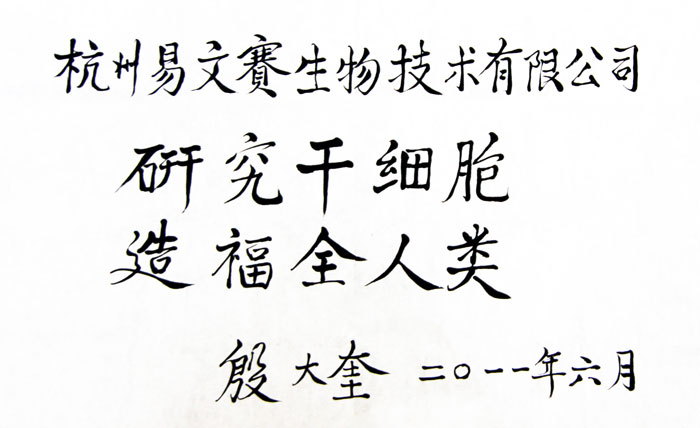 杭州易文赛生物技术有限公司
研究干细胞
造福全人类
殷大奎 二〇一一年六月